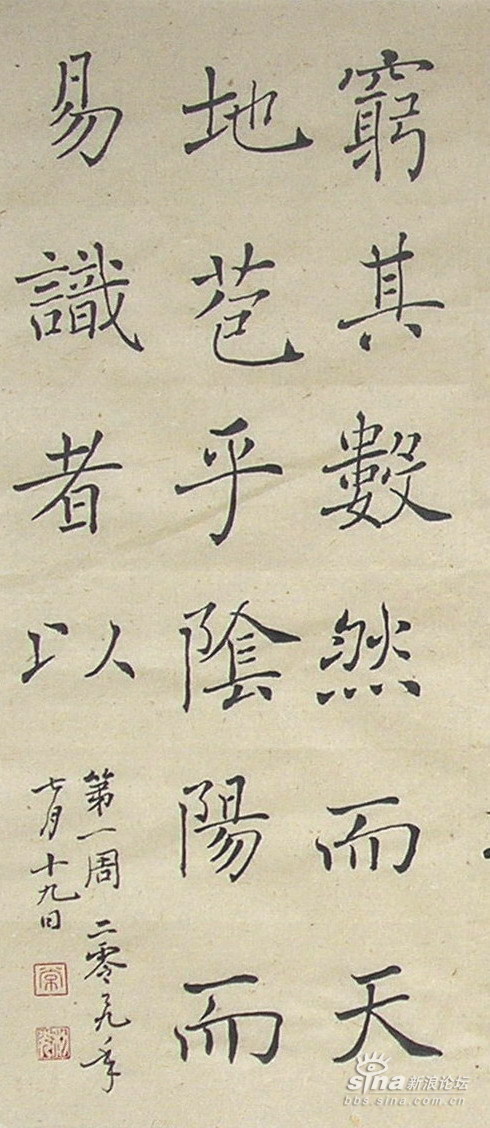 窮其數然而天
地苞乎陰陽而
易識者以
第一周 二零々九年
七月十九日
sina新浪论坛
bbs.sina.com.cn